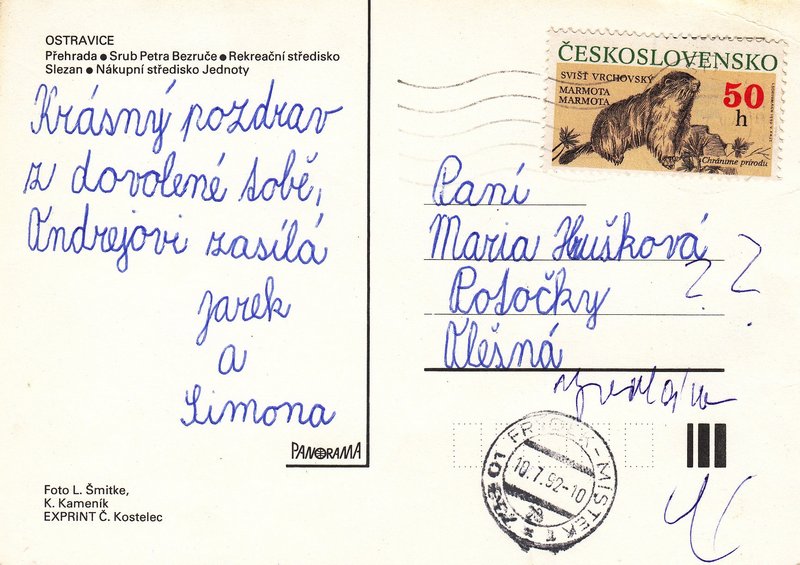 OSTRAVICE
Přehrada ● Srub Petra Bezruče ● Rekreační středisko
Slezan ● Nákupní středisko Jednoty
Krásný pozdrav
z dovolené tobě,
Andrejovi zasílá
Jarek
a
Simona
PANORAMA
Foto L. Šmitke,
K. Kameník
EXPRINT Č. Kostelec
ČESKOSLOVENSKO
SVIŠŤ VRCHOVSKÝ
MARMOTA
MARMOTA
50
h
Chráníme přírodu
Paní
Maria Hušková
Potočky ? ?
Olešná
FRÝDEK-MÍSTEK 1
10.7.92-10
01